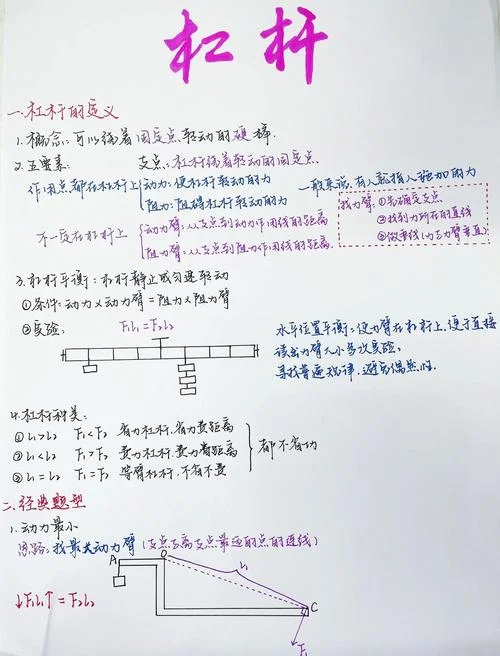 杠杆
一.杠杆的定义
1.概念:可以绕着固定点转动的硬棒.
2.五要素:
支点:杠杆绕着转动的固定点.
作用点都在杠杆上
动力:使杠杆转动的力
阻力:阻碍杠杆转动的力
一般来说,有人就指人施加的力
不一定在杠杆上
动力臂:从支点到动力作用线的距离
阻力臂:从支点到阻力作用线的距离.
找力臂:①先确定支点
②找到力所在的直线
③做垂线(力与力臂垂直)
3.杠杆平衡:杠杆静止或匀速转动
①条件:动力×动力臂=阻力×阻力臂
②实验:
F₁L₁=F₂L₂
水平位置平衡:使力臂在杠杆上,便于直接
读出力臂大小多次实验:
寻找普遍规律,避免偶然性.
4.杠杆种类:
①L₁>L₂ F₁<F₂ 省力杠杆,省力费距离
②L₁<L₂ F₁>F₂ 费力杠杆,费力省距离
③L₁=L₂ F₁=F₂ 等臂杠杆,不省不费
都不省功
二.经典题型
1.动力最小
思路:找最大动力臂(支点与离支点最远的点的连线)
A
O
L₁
C
F₁
↓F₁L₁↑=F₂L₂